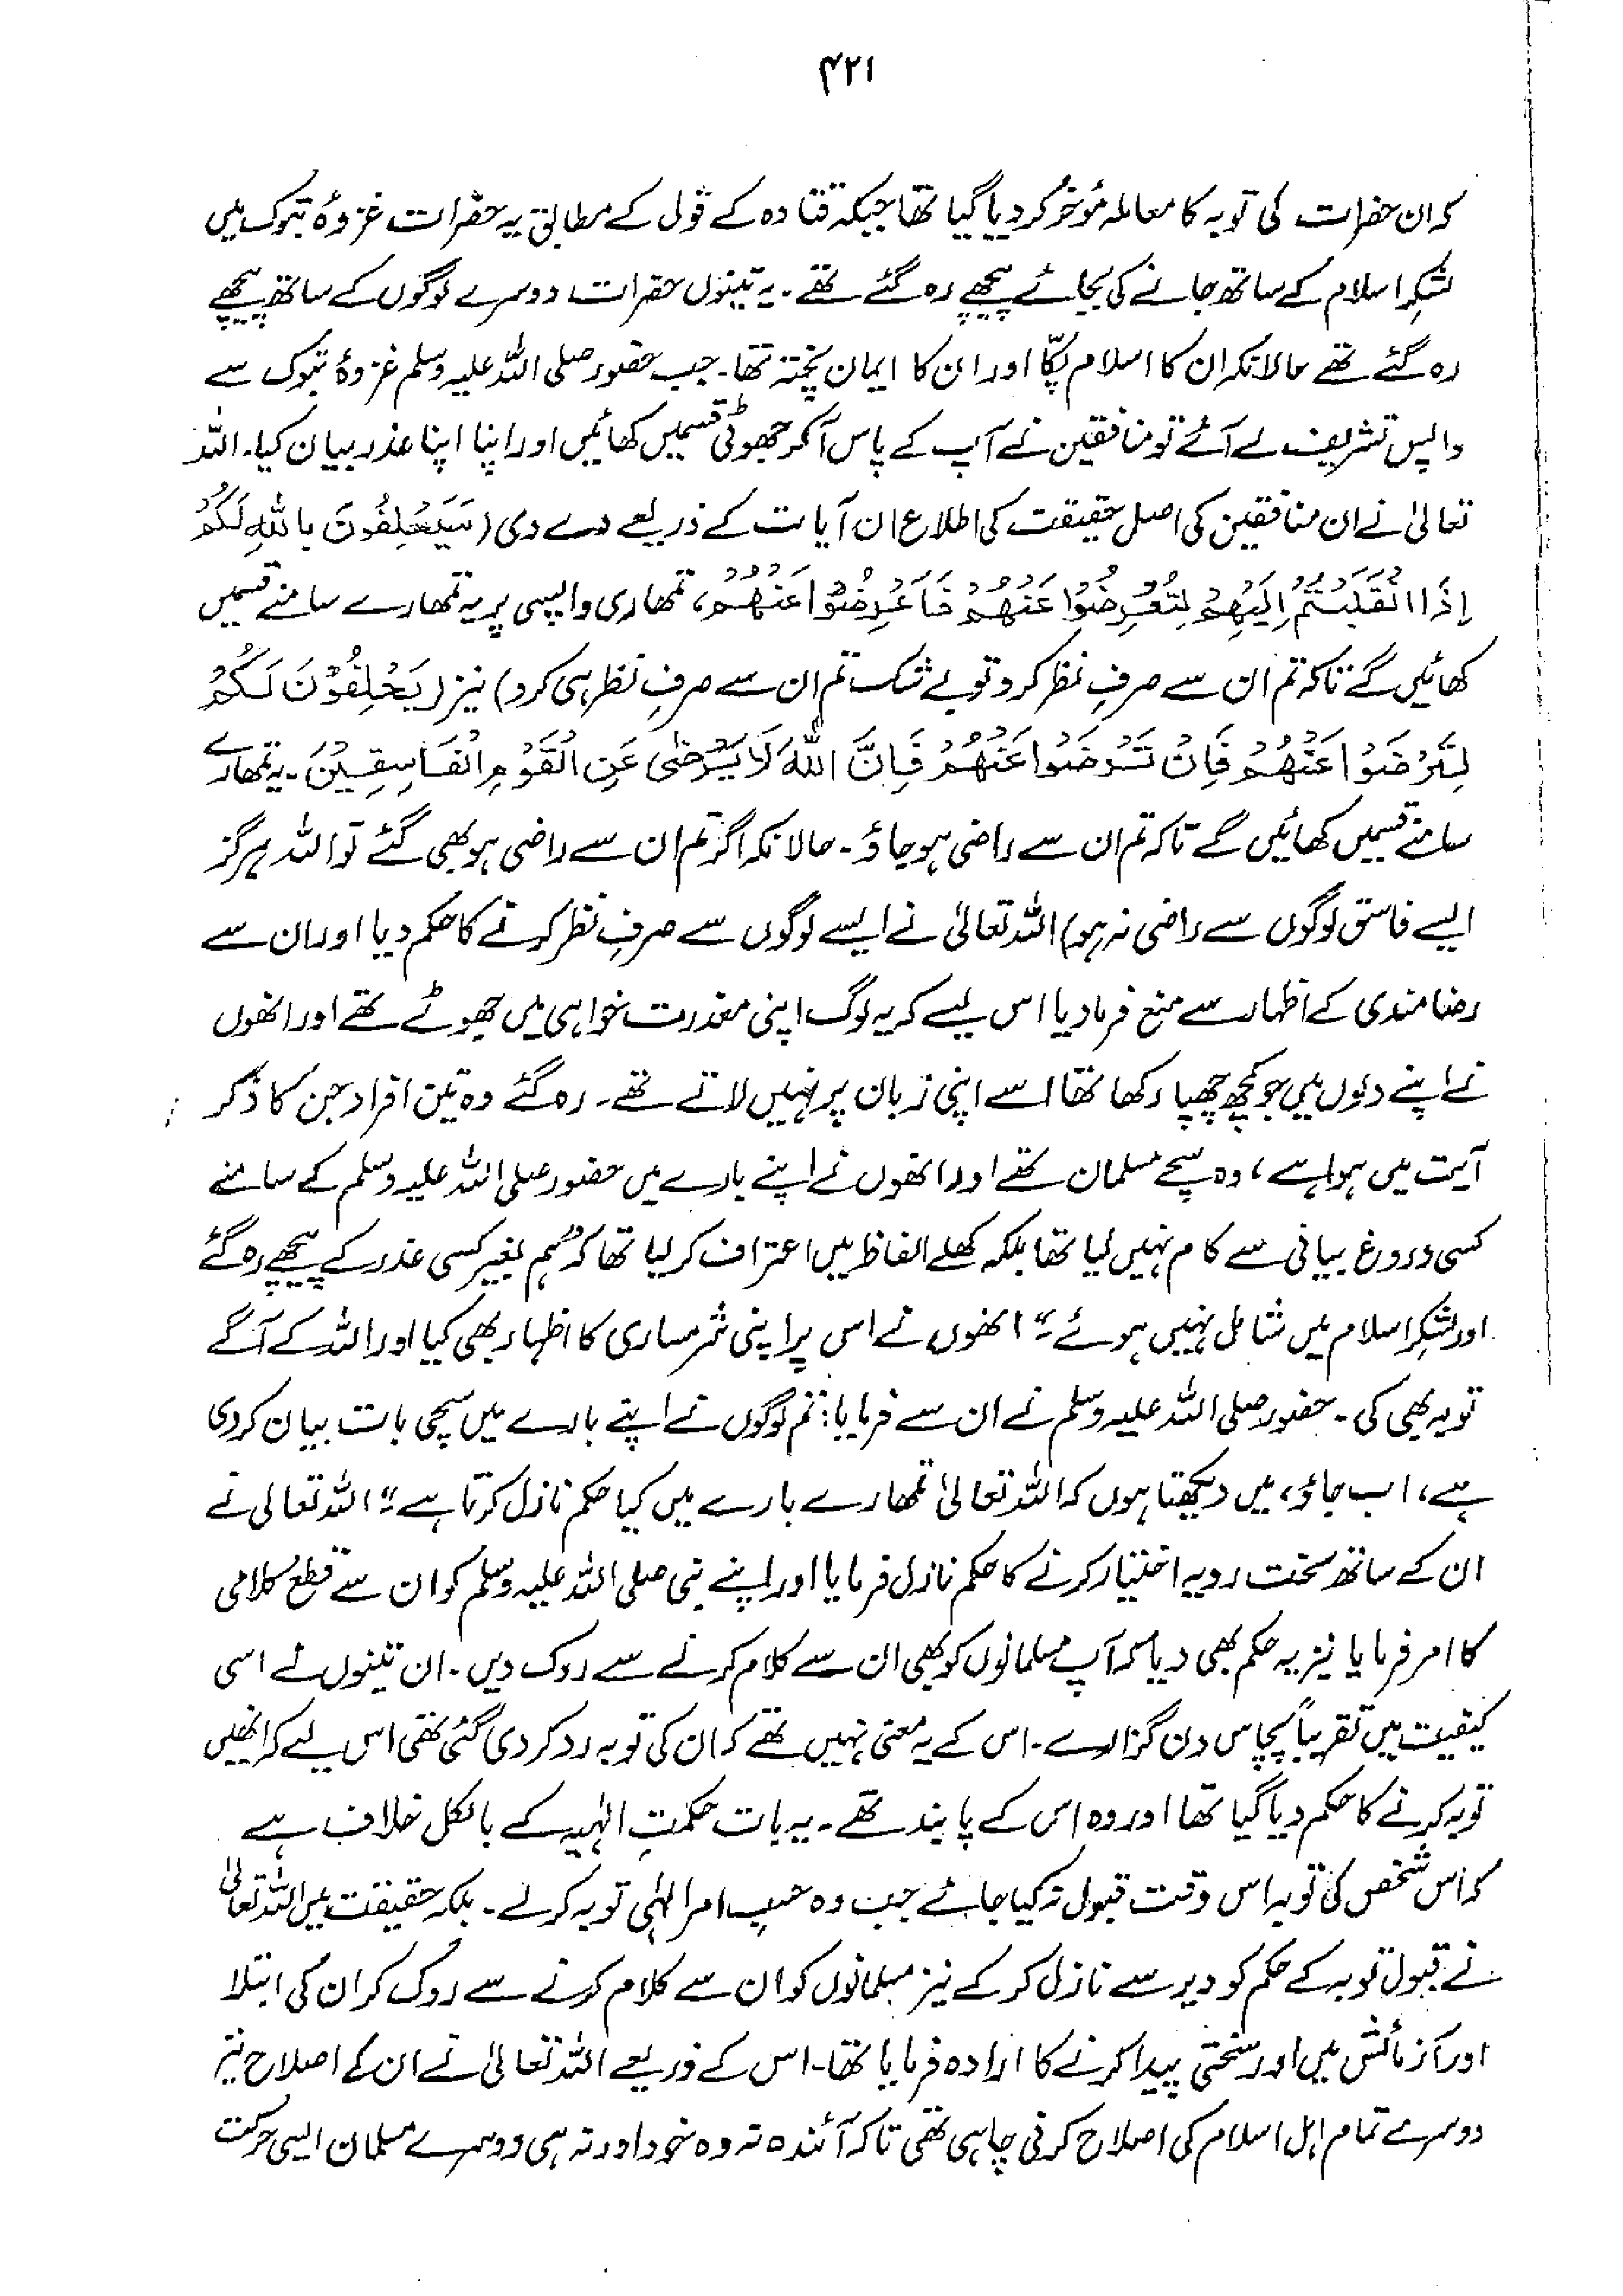 ۴۲۱
کہ ان حضرات کی توبہ کا معاملہ مؤخر کر دیا گیا تھا جبکہ قتادہ کے قول کے مطابق یہ حضرات غزوۂ تبوک میں
لشکرِ اسلام کے ساتھ جانے کی بجائے پیچھے رہ گئے تھے۔ یہ تینوں حضرات دوسرے لوگوں کے ساتھ پیچھے
رہ گئے تھے حالانکہ ان کا اسلام پکّا اور ان کا ایمان پختہ تھا۔ جب حضور صلی اللہ علیہ وسلم غزوۂ تبوک سے
واپس تشریف لے آئے تو منافقین نے آپ کے پاس آکر جھوٹی قسمیں کھائیں اور اپنا اپنا عذر بیان کیا۔ اللہ
تعالیٰ نے ان منافقین کی اصل حقیقت کی اطلاع ان آیات کے ذریعے دے دی (سَيَحْلِفُوْنَ بِاللّٰهِ لَكُمْ
اِذَا انْقَلَبْتُمْ اِلَيْهِمْ لِتُعْرِضُوْا عَنْهُمْ فَاَعْرِضُوْا عَنْهُمْ، تمھاری واپسی پر یہ تمھارے سامنے قسمیں
کھائیں گے تاکہ تم ان سے صرفِ نظر کرو تو بے شک تم ان سے صرفِ نظر ہی کرو) نیز (يَحْلِفُوْنَ لَكُمْ
لِتَرْضَوْا عَنْهُمْ فَاِنْ تَرْضَوْا عَنْهُمْ فَاِنَّ اللّٰهَ لَا يَرْضٰى عَنِ الْقَوْمِ الْفَاسِقِيْنَ۔ یہ تمھارے
سامنے قسمیں کھائیں گے تاکہ تم ان سے راضی ہو جاؤ۔ حالانکہ اگر تم ان سے راضی ہو بھی گئے تو اللہ ہرگز
ایسے فاسق لوگوں سے راضی نہ ہو) اللہ تعالیٰ نے ایسے لوگوں سے صرفِ نظر کرنے کا حکم دیا اور ان سے
رضامندی کے اظہار سے منع فرما دیا اس لیے کہ یہ لوگ اپنی معذرت خواہی میں جھوٹے تھے اور انھوں
نے اپنے دلوں میں جو کچھ چھپا رکھا تھا اسے اپنی زبان پر نہیں لاتے تھے۔ رہ گئے وہ تین افراد جن کا ذکر
آیت میں ہوا ہے، وہ سچے مسلمان تھے اور انھوں نے اپنے بارے میں حضور صلی اللہ علیہ وسلم کے سامنے
کسی دروغ بیانی سے کام نہیں لیا تھا بلکہ کھلے الفاظ میں اعتراف کر لیا تھا کہ "ہم بغیر کسی عذر کے پیچھے رہ گئے
اور لشکرِ اسلام میں شامل نہیں ہوئے۔" انھوں نے اس پر اپنی شرمساری کا اظہار بھی کیا اور اللہ کے آگے
توبہ بھی کی۔ حضور صلی اللہ علیہ وسلم نے ان سے فرمایا: تم لوگوں نے اپنے بارے میں سچی بات بیان کر دی
ہے، اب جاؤ، میں دیکھتا ہوں کہ اللہ تعالیٰ تمھارے بارے میں کیا حکم نازل کرتا ہے۔" اللہ تعالی نے
ان کے ساتھ سخت رویہ اختیار کرنے کا حکم نازل فرمایا اور اپنے نبی صلی اللہ علیہ وسلم کو ان سے قطع کلامی
کا امر فرمایا نیز یہ حکم بھی دیا کہ آپ مسلمانوں کو بھی ان سے کلام کرنے سے روک دیں۔ ان تینوں نے اسی
کیفیت میں تقریباً پچاس دن گزارے۔ اس کے یہ معنی نہیں تھے کہ ان کی توبہ رد کر دی گئی تھی اس لیے کہ انھیں
توبہ کرنے کا حکم دیا گیا تھا اور وہ اس کے پابند تھے۔ یہ بات حکمتِ الٰہیہ کے بالکل خلاف ہے
کہ اس شخص کی توبہ اس وقت قبول نہ کیا جائے جب وہ حسبِ امر الٰہی توبہ کر لے۔ بلکہ حقیقت میں اللہ تعالیٰ
نے قبول توبہ کے حکم کو دیر سے نازل کر کے نیز مسلمانوں کو ان سے کلام کرنے سے روک کر ان کی ابتلا
اور آزمائش میں اور سختی پیدا کرنے کا ارادہ فرمایا تھا۔ اس کے ذریعے اللہ تعالیٰ نے ان کے اصلاح نیز
دوسرے تمام اہل اسلام کی اصلاح کرنی چاہی تھی تاکہ آئندہ نہ وہ خود اور نہ ہی دوسرے مسلمان ایسی حرکت